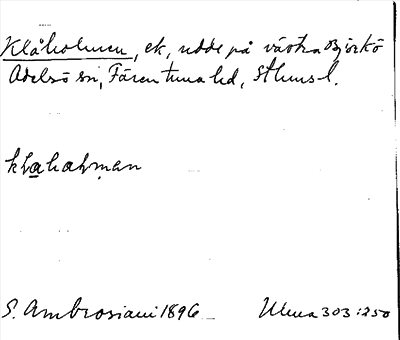 Klåholmen, ek, udde på västra Björkö
Adelsö sn, Färentuna hd, Sthms l.
klahalman
S. Ambrosiani 1896 Uma 303:250